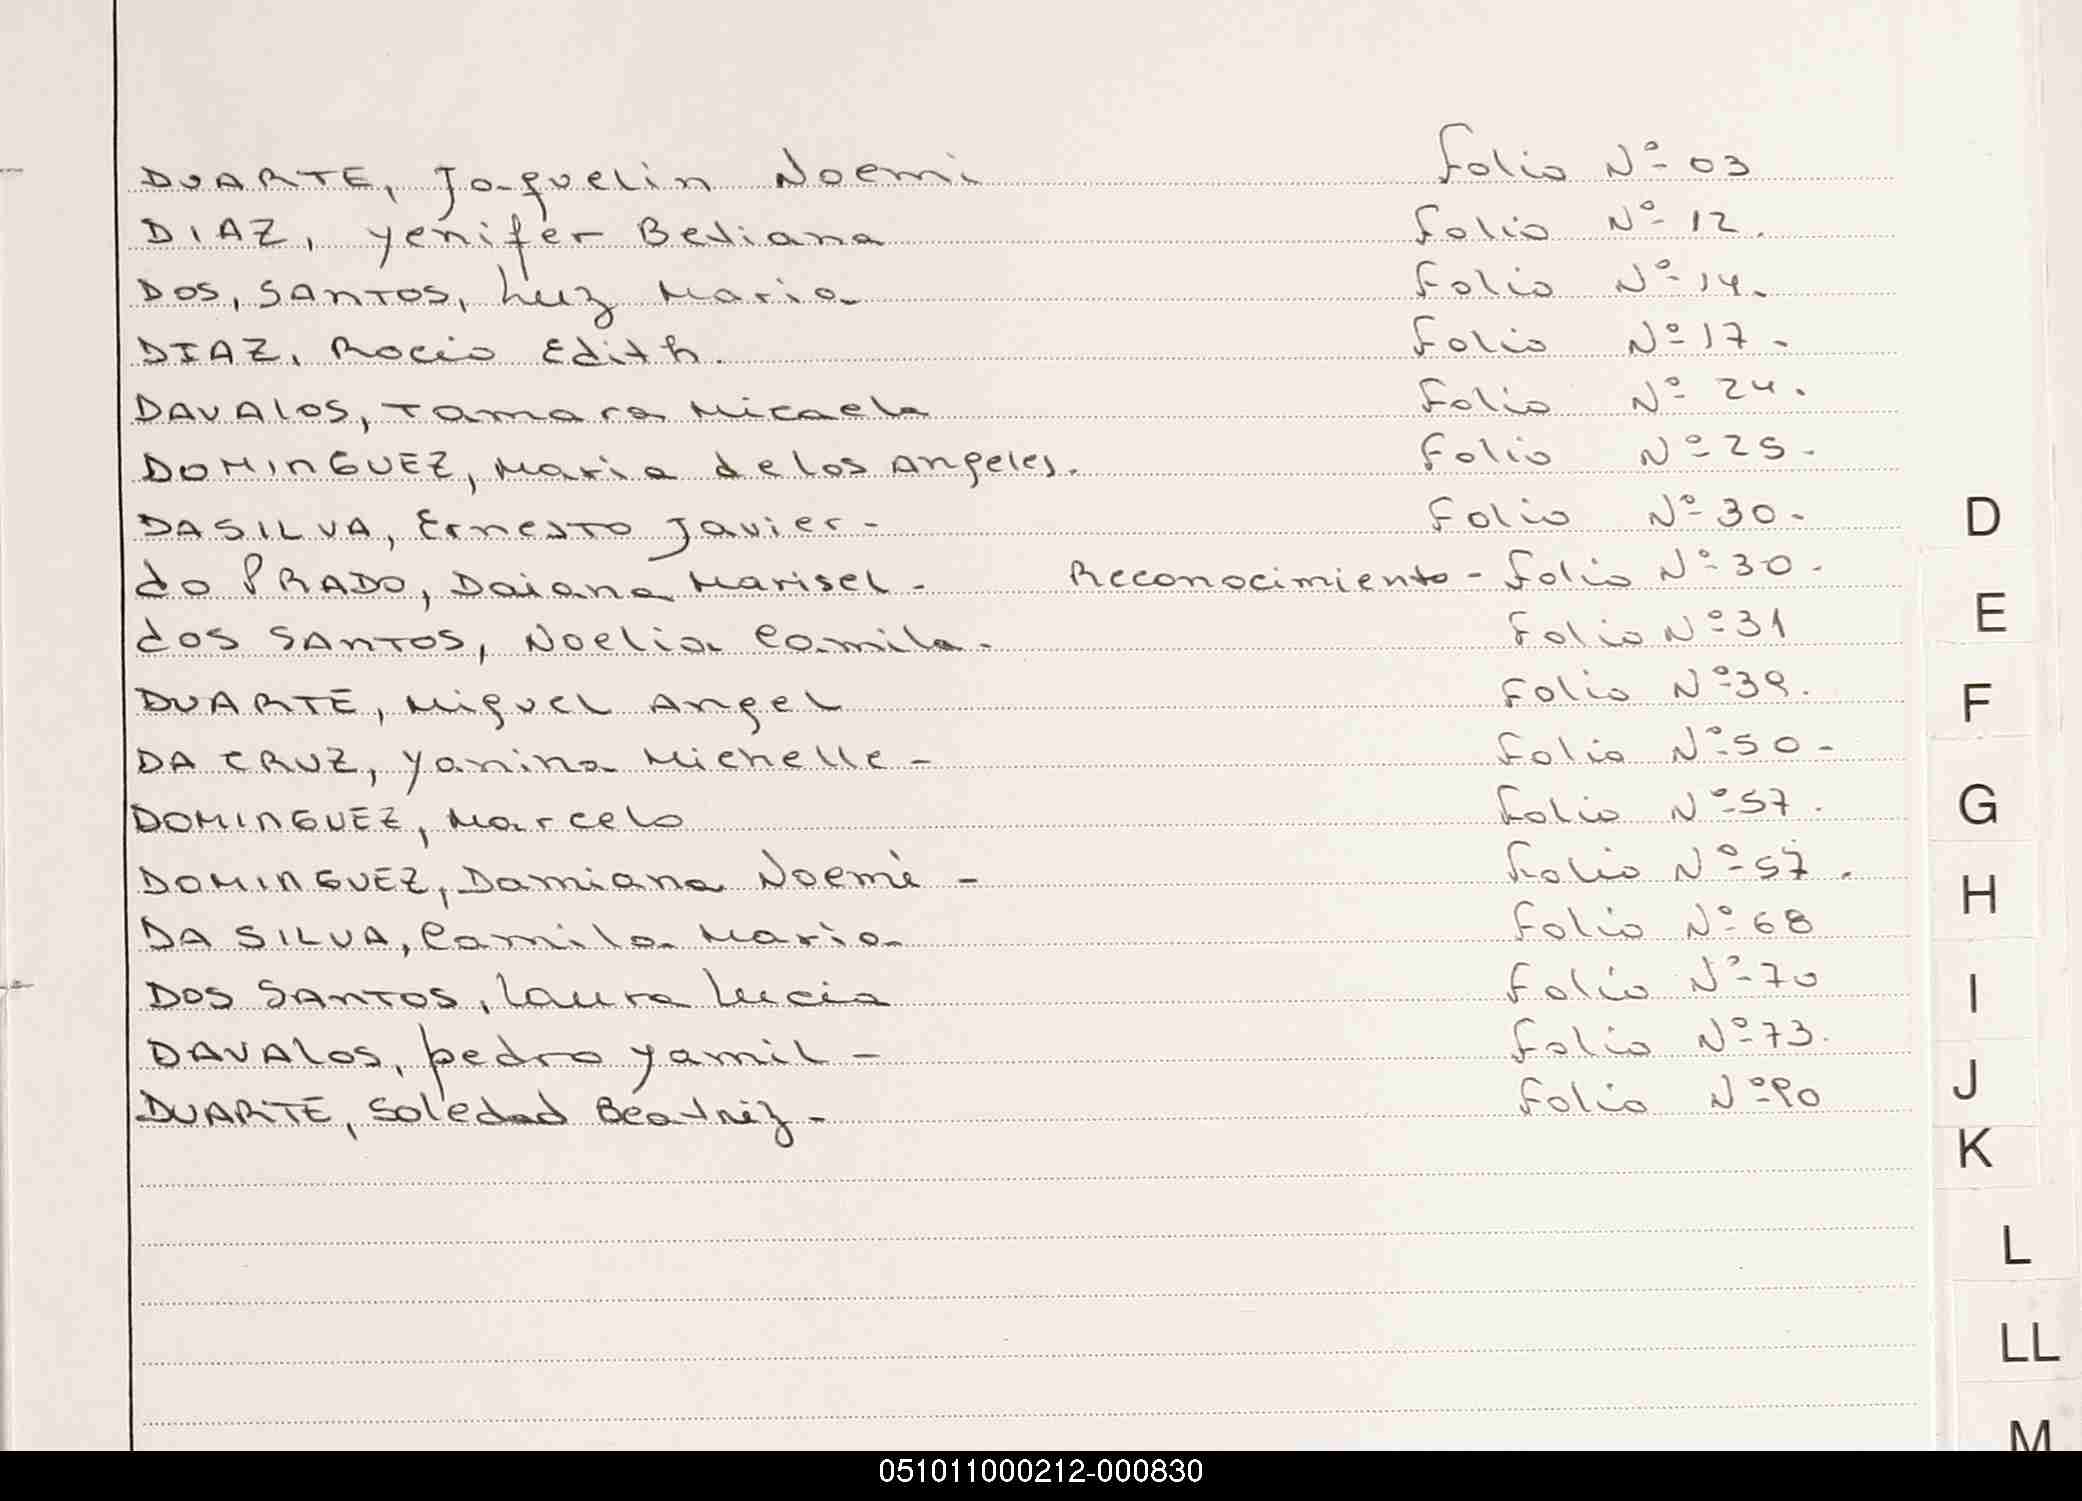 DUARTE, Jaquelin Noemi Folio Nº 03
DIAZ, Yenifer Betiana Folio Nº 12.
DOS, SANTOS, Luz Maria Folio Nº 14.
DIAZ, Rocio Edith. Folio Nº 17.
DAVALOS, Tamara Micaela Folio Nº 24.
DOMINGUEZ, Maria de los Angeles. Folio Nº 25.
DA SILVA, Ernesto Javier- Folio Nº 30-
do PRADO, Daiana Marisel- Reconocimiento-Folio Nº 30-
dos SANTOS, Noelia Camila- Folio Nº 31
DUARTE, Miguel Angel Folio Nº 39.
DA CRUZ, Yanina Michelle- Folio Nº 50-
DOMINGUEZ, Marcelo Folio Nº 57.
DOMINGUEZ, Damiana Noemi- Folio Nº 57.
DA SILVA, Camila Maria Folio Nº 68
DOS SANTOS, Laura Lucia Folio Nº 70
DAVALOS, Pedro Yamil- Folio Nº 73.
DUARTE, Soledad Beatriz- Folio Nº 90
D
E
F
G
H
I
J
K
L
LL
M
051011000212-000830